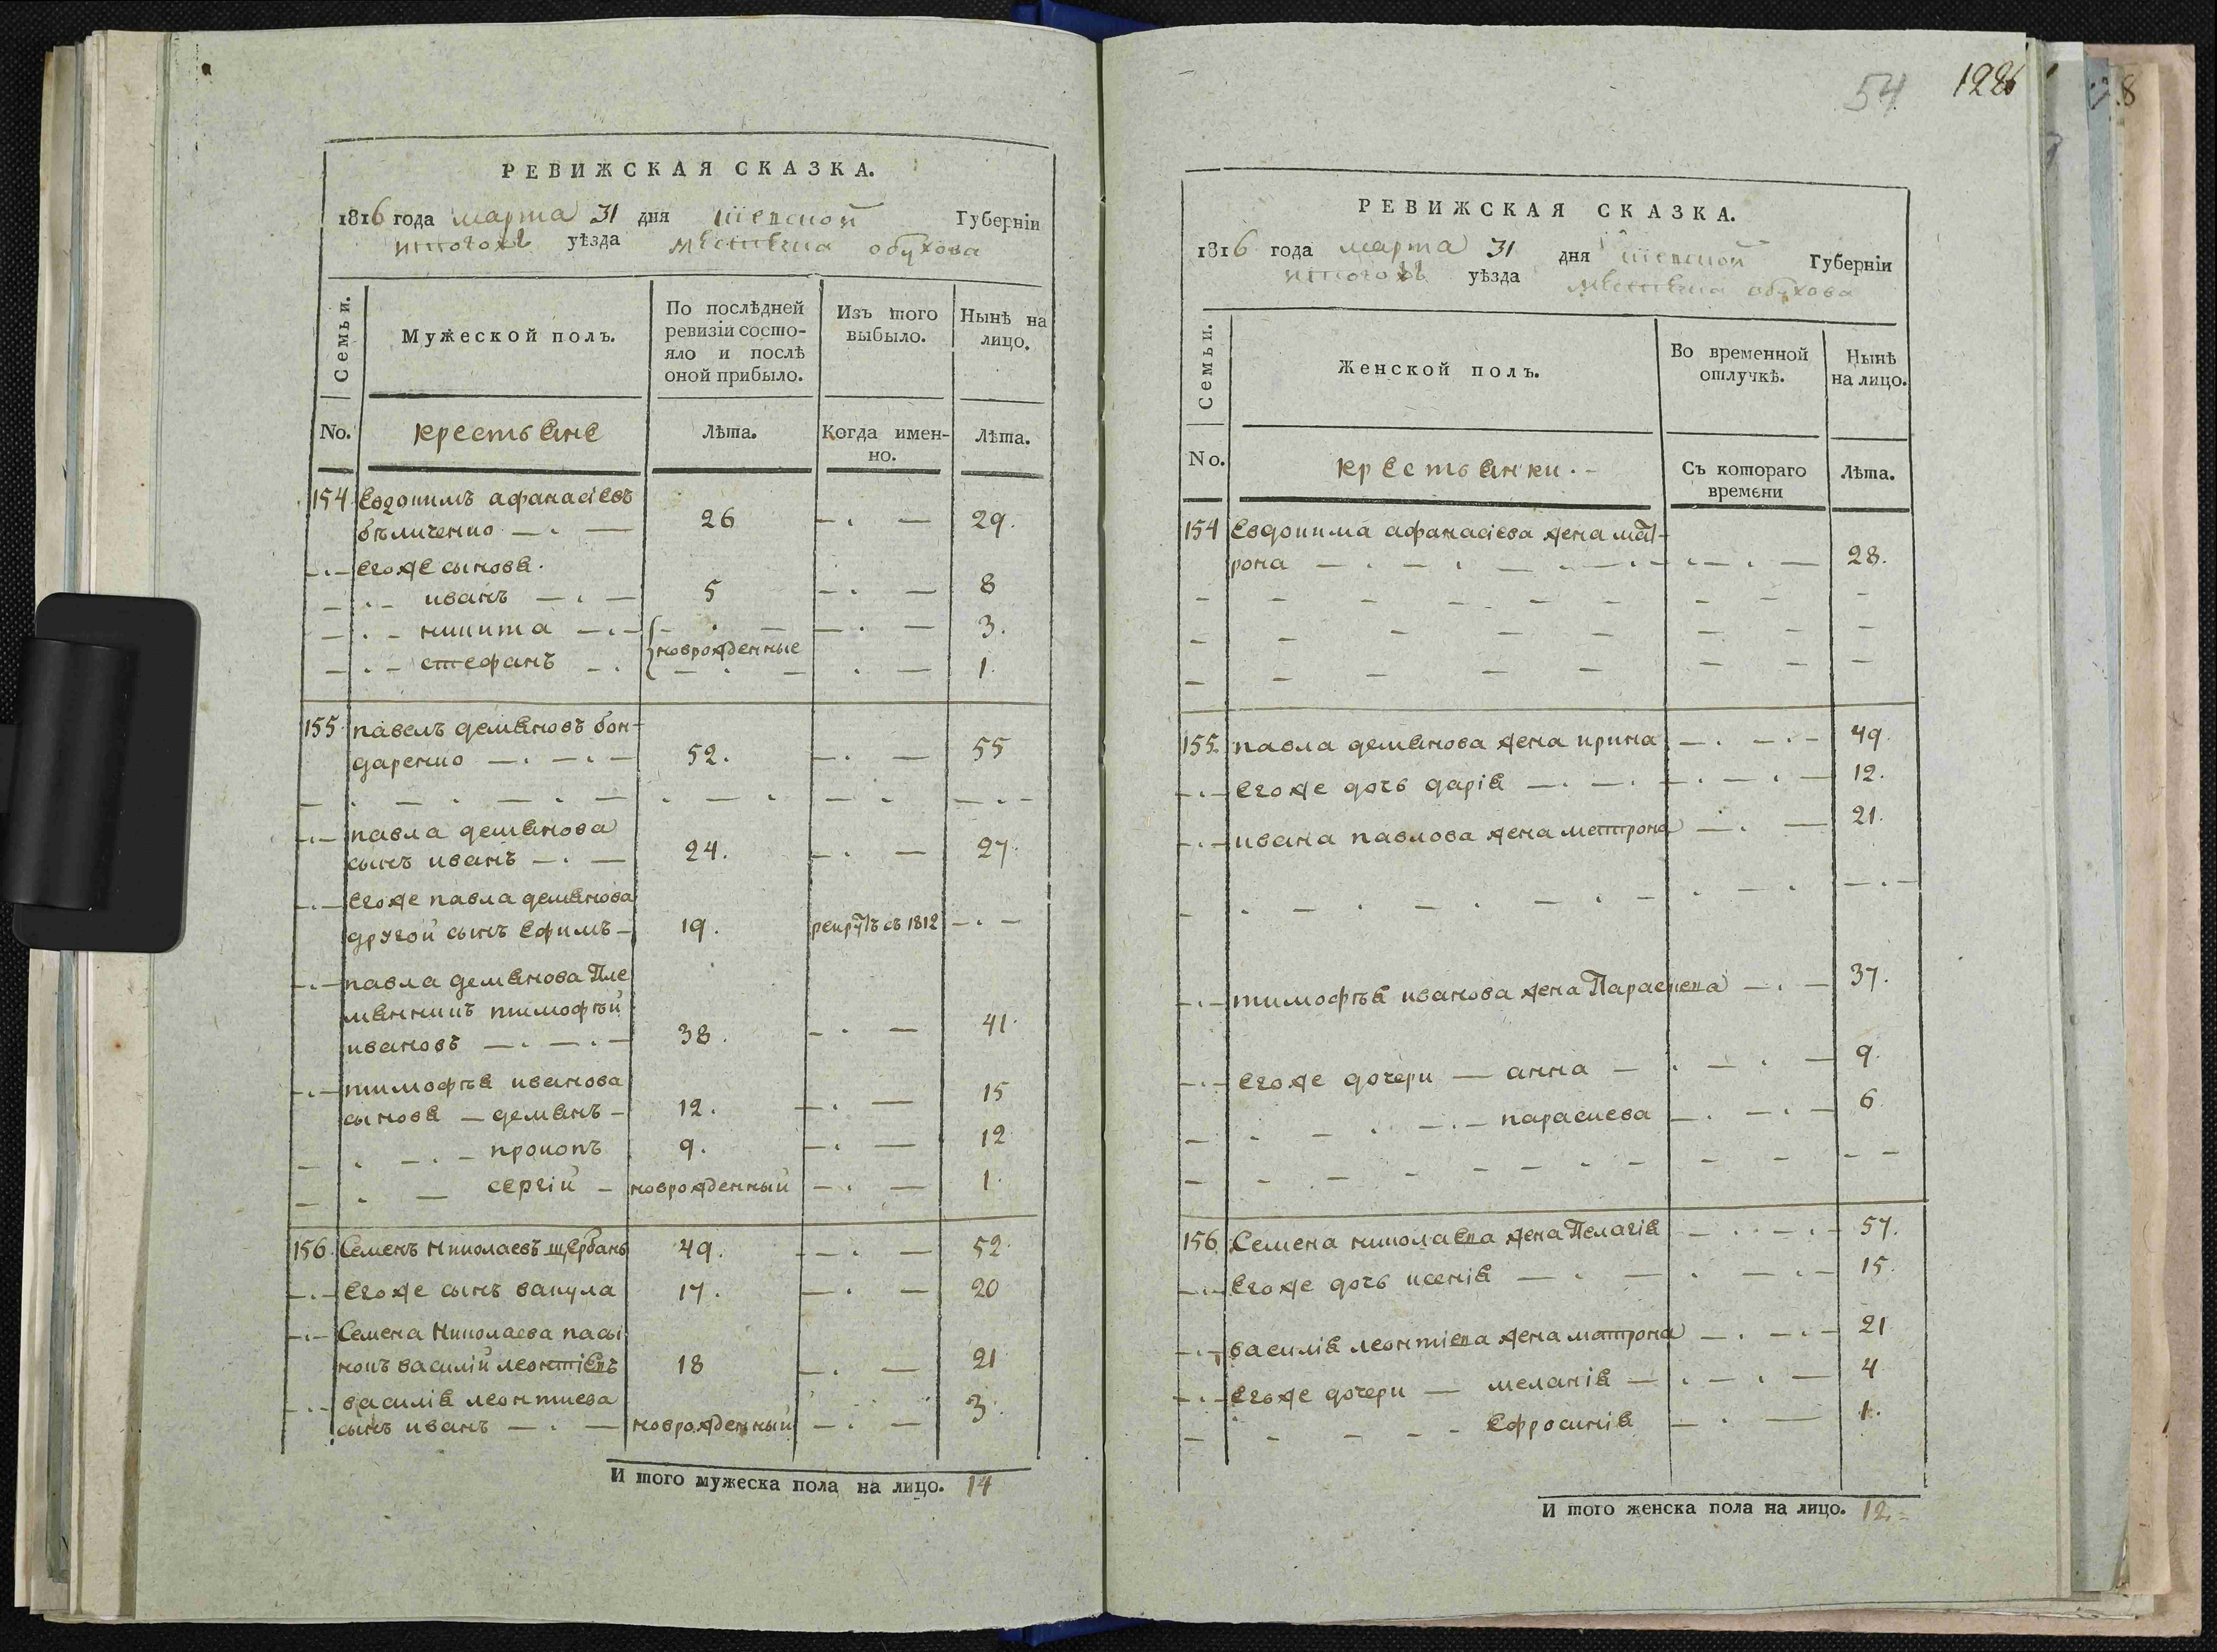 РЕВИЖСКАЯ СКАЗКА.
1816 года марта 31 дня Кіевской Губерніи
тогожъ уѣзда мѣстечка обухова
Семьи.
Мужеской полъ.
По послѣдней ревизіи состо-
яло и послѣ
оной прибыло.
Изъ того
выбыло.
Нынѣ на
лицо.
No.
крестьяне
Лѣта.
Когда имен-
но.
Лѣта.
154 Евдокимъ афанасіевъ
бѣличенко 26 29.
егоже сыновя.
иванъ 5 8
никита 3.
новрожденные
стефанъ 1.
155 павелъ демяновъ бон-
даренко 52. 55
павла демянова
сынъ иванъ 24. 27.
егоже павла демянова
другой сынъ Ефимъ 19. рекрутъ съ 1812
павла демянова Пле
мянникъ тимофѣй
ивановъ 38. 41.
тимофѣя иванова
сыновя демянъ 12. 15
прокопъ 9. 12
сергій новрожденный 1.
156. Семенъ Николаевъ щербань 49. 52.
Егоже сынъ вакула 17. 20
Семена Николаева пасы
нокъ василій леонтіевъ 18 21
василія леонтиева
сынъ иванъ новрожденный 3.
И того мужеска пола на лицо. 14
54 122
РЕВИЖСКАЯ СКАЗКА.
1816 года марта 31 дня Кіевской Губерніи
тогожъ уѣзда мѣстечка обухова
Семьи.
Женской полъ.
Во временной
отлучкѣ.
Нынѣ
на лицо.
No.
крестьянки.
Съ котораго
времени
Лѣта.
154 Евдокима афанасіева жена мат-
рона 28.
155. павла демянова жена ирина 49.
егоже дочь дарія 12.
ивана павлова жена матрона 21.
тимофѣя иванова жена Параскева 37.
егоже дочери анна 9.
параскева 6
156 Семена николаева жена Пелагія 57.
егоже дочь ксенія 15.
василія леонтіева жена матрона 21
егоже дочери меланія 4
Ефросинія 1.
И того женска пола на лицо. 12.